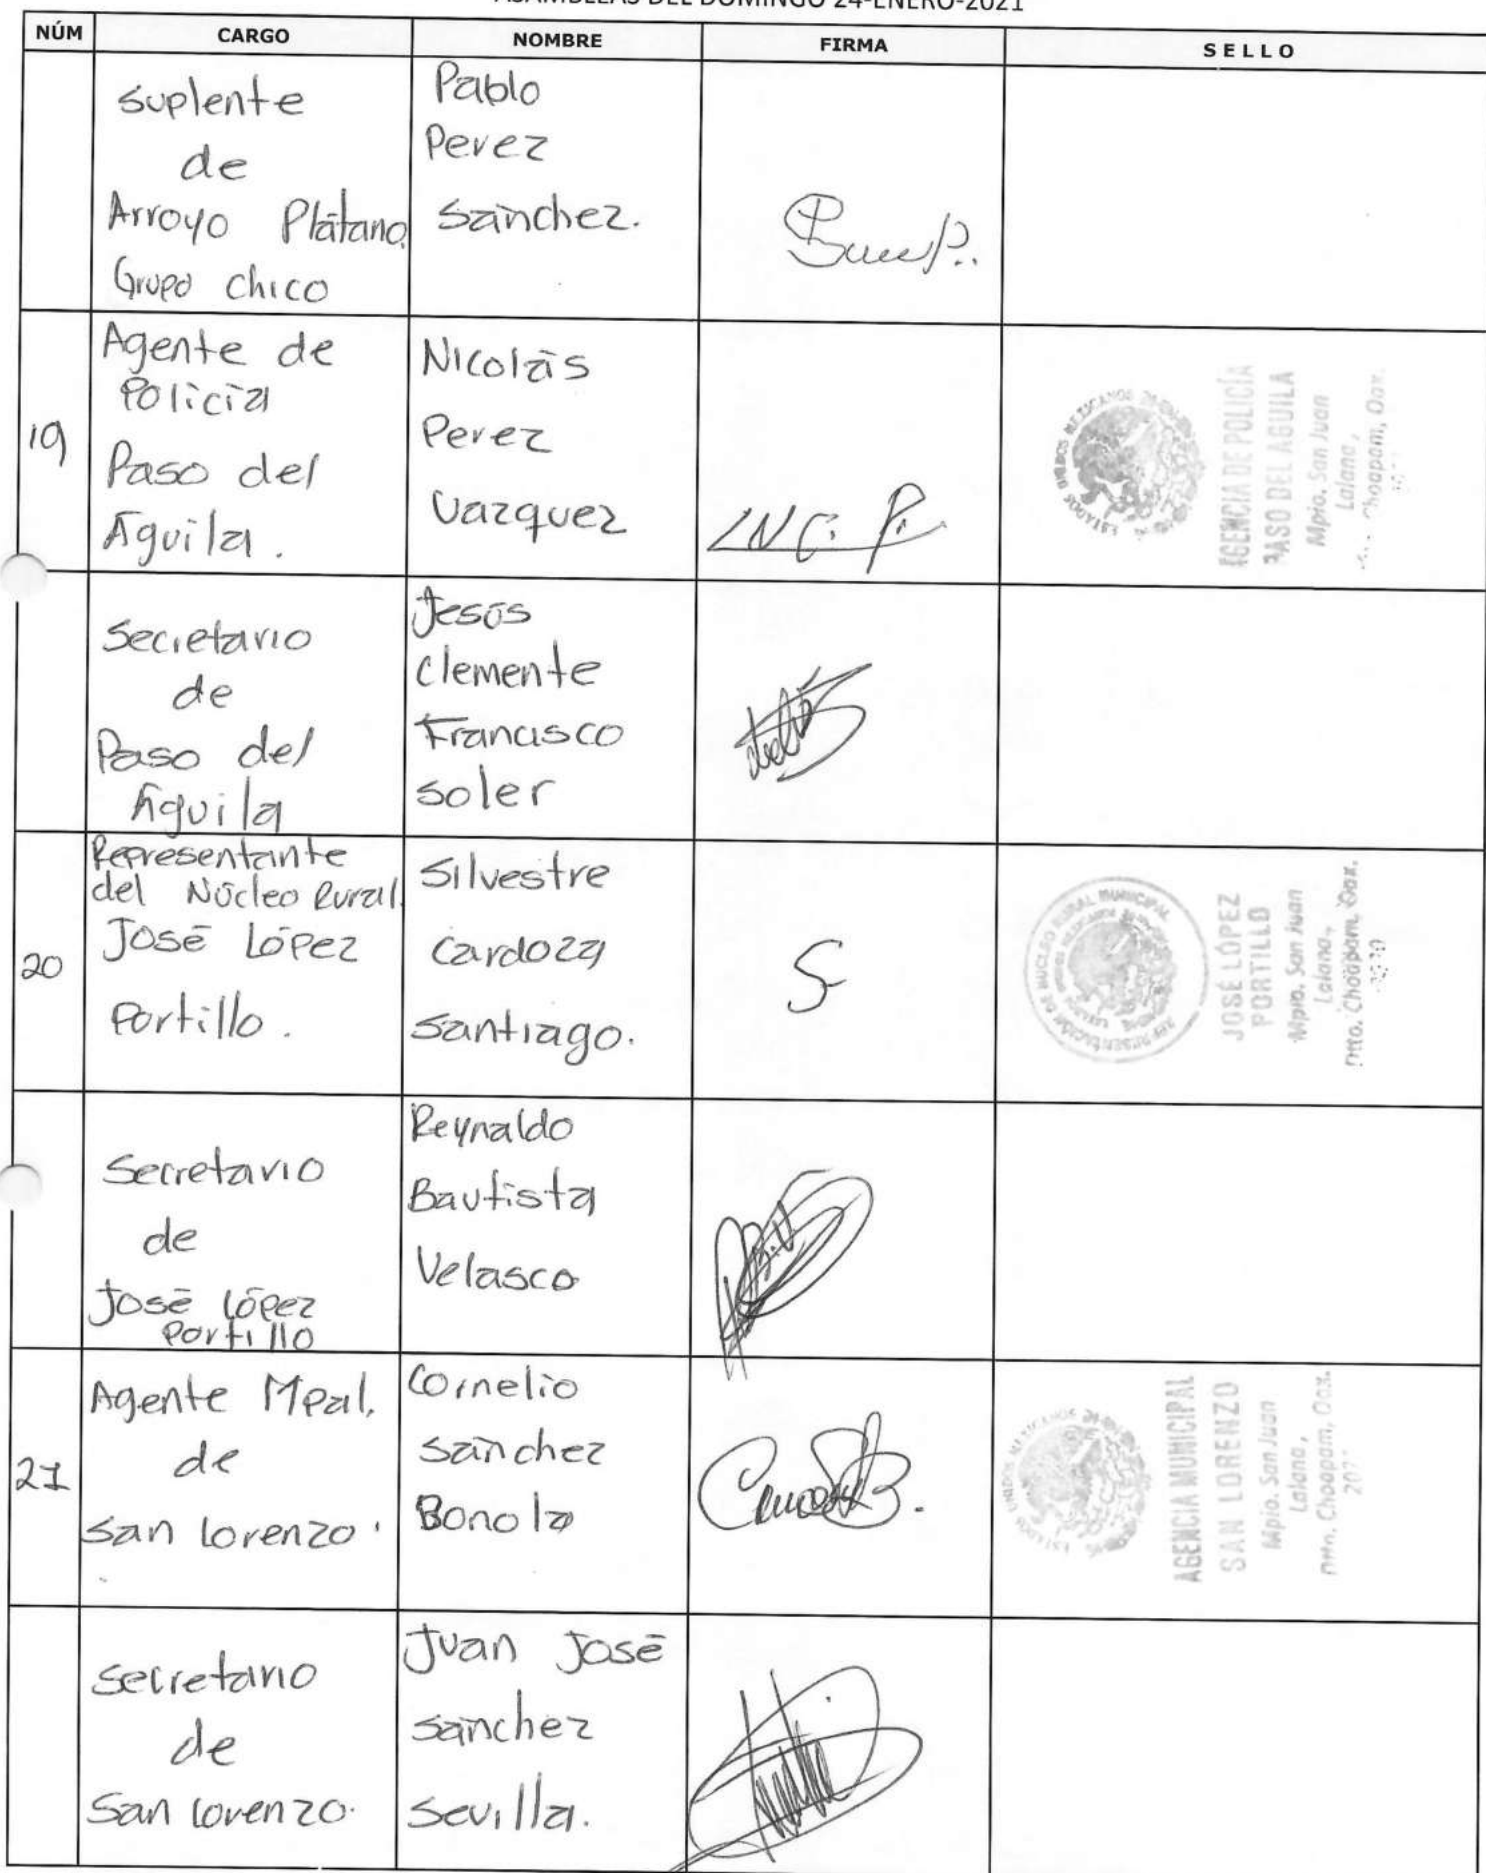 ASAMBLEAS DEL DOMINGO 24-ENERO-2021
NÚM CARGO NOMBRE FIRMA SELLO
Suplente
de
Arroyo Plátano
Grupo Chico
Pablo
Perez
Sánchez.
19
Agente de
Policía
Paso del
Águila.
Nicolás
Perez
Vazquez
AGENCIA DE POLICÍA
PASO DEL AGUILA
Mpio. San Juan
Lalana,
Choapam, Oax.
ESTADOS UNIDOS MEXICANOS
Secretario
de
Paso del
Águila
Jesús
Clemente
Francisco
Soler
20
Representante
del Núcleo Rural.
José López
Portillo.
Silvestre
Cardoza
Santiago.
S
REPRESENTACIÓN DE NUCLEO RURAL MUNICIPAL
JOSÉ LÓPEZ
PORTILLO
Mpio. San Juan
Lalana,
Dtto. Choapam, Oax.
Secretario
de
José López
Portillo
Reynaldo
Bautista
Velasco
21
Agente Mpal.
de
San Lorenzo.
Cornelio
Sánchez
Bonola
AGENCIA MUNICIPAL
SAN LORENZO
Mpio. San Juan
Lalana,
Dtto. Choapam, Oax.
Secretario
de
San Lorenzo.
Juan José
Sánchez
Sevilla.